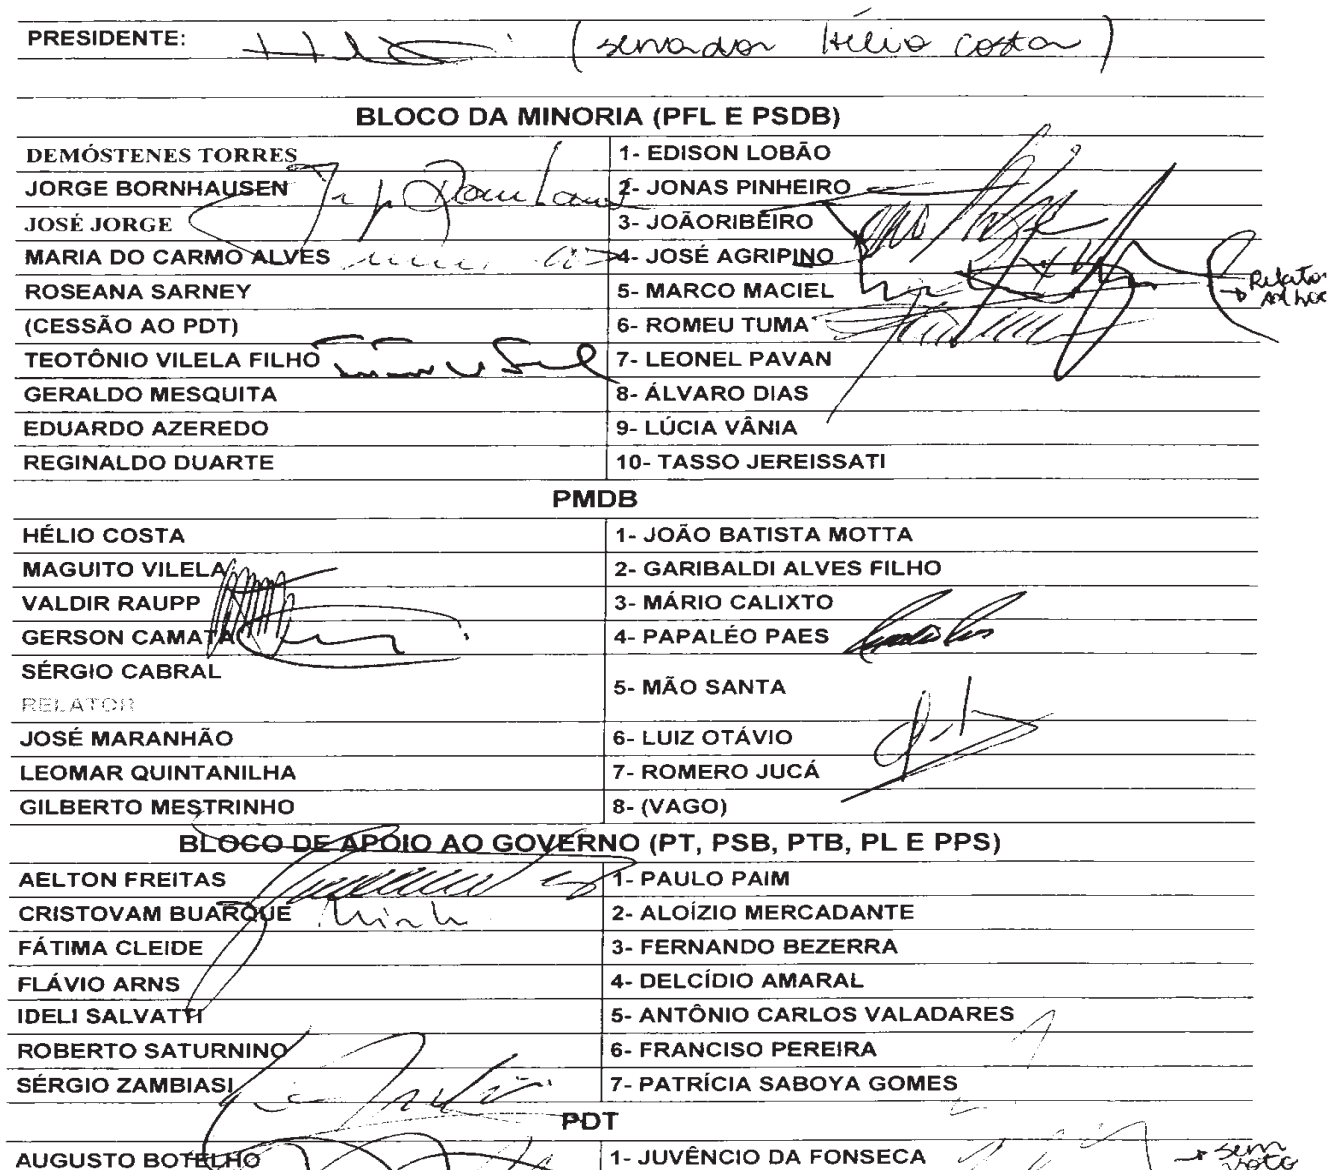 PRESIDENTE: (senador Hélio Costa)
BLOCO DA MINORIA (PFL E PSDB)
DEMÓSTENES TORRES 1- EDISON LOBÃO
JORGE BORNHAUSEN 2- JONAS PINHEIRO
JOSÉ JORGE 3- JOÃORIBEIRO
MARIA DO CARMO ALVES 4- JOSÉ AGRIPINO
ROSEANA SARNEY 5- MARCO MACIEL Relator ad hoc
(CESSÃO AO PDT) 6- ROMEU TUMA
TEOTÔNIO VILELA FILHO 7- LEONEL PAVAN
GERALDO MESQUITA 8- ÁLVARO DIAS
EDUARDO AZEREDO 9- LÚCIA VÂNIA
REGINALDO DUARTE 10- TASSO JEREISSATI
PMDB
HÉLIO COSTA 1- JOÃO BATISTA MOTTA
MAGUITO VILELA 2- GARIBALDI ALVES FILHO
VALDIR RAUPP 3- MÁRIO CALIXTO
GERSON CAMATA 4- PAPALÉO PAES
SÉRGIO CABRAL 5- MÃO SANTA
RELATOR
JOSÉ MARANHÃO 6- LUIZ OTÁVIO
LEOMAR QUINTANILHA 7- ROMERO JUCÁ
GILBERTO MESTRINHO 8- (VAGO)
BLOCO DE APOIO AO GOVERNO (PT, PSB, PTB, PL E PPS)
AELTON FREITAS 1- PAULO PAIM
CRISTOVAM BUARQUE 2- ALOÍZIO MERCADANTE
FÁTIMA CLEIDE 3- FERNANDO BEZERRA
FLÁVIO ARNS 4- DELCÍDIO AMARAL
IDELI SALVATTI 5- ANTÔNIO CARLOS VALADARES
ROBERTO SATURNINO 6- FRANCISO PEREIRA
SÉRGIO ZAMBIASI 7- PATRÍCIA SABOYA GOMES
PDT
AUGUSTO BOTELHO 1- JUVÊNCIO DA FONSECA sem voto